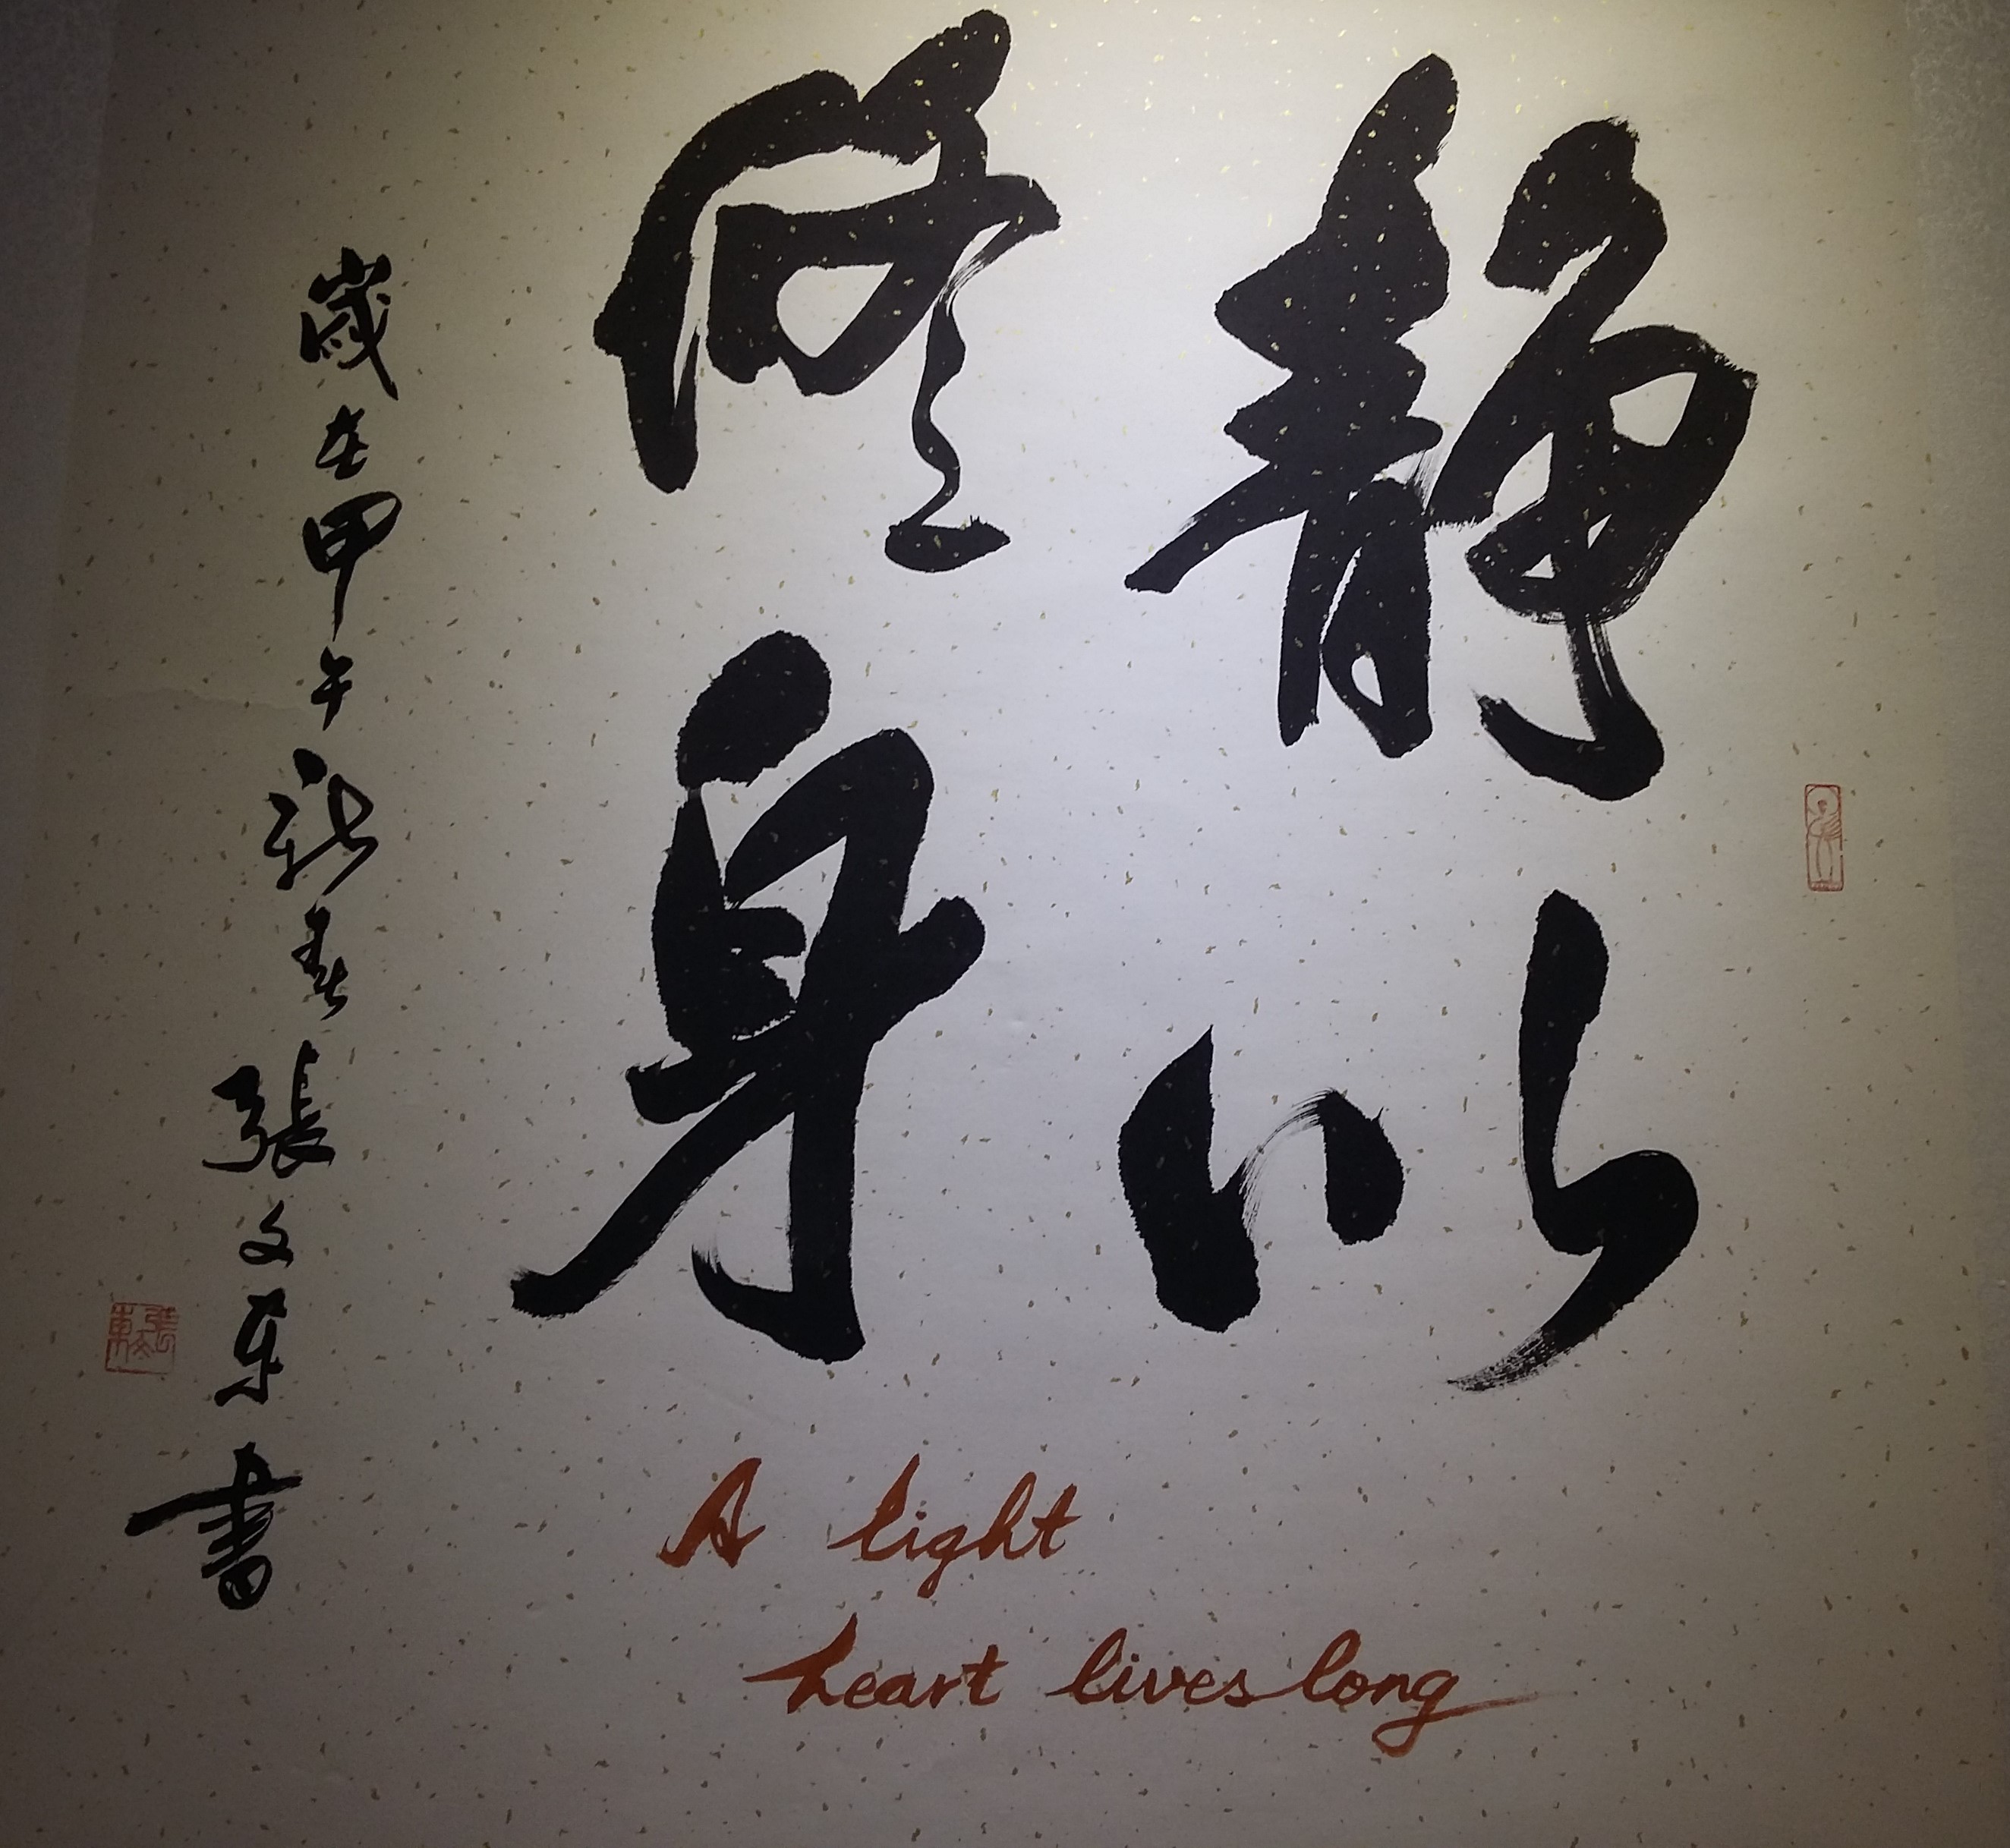 靜以
修身
歲在甲午新春張文東書
張文東
A light
heart lives long